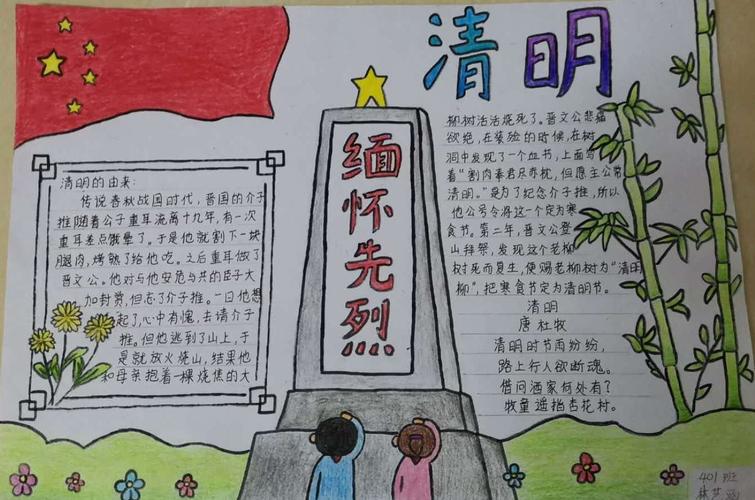 清明
缅怀先烈
清明的由来:
传说春秋战国时代，晋国的介子
推随着公子重耳流离十九年，有一次
重耳差点饿晕了。于是他就割下一块
腿肉，烤熟了给他吃。之后重耳做了
晋文公。他对与他安危与共的臣子大
加封赏，但忘了介子推。一日他想
起了，心中有愧，去请介子
推。但他逃到了山上，于
是就放火烧山，结果他
和母亲抱着一棵烧焦的大
柳树活活烧死了。晋文公悲痛
欲绝，在装殓的时候，在树
洞中发现了一个血书，上面写
着“割肉奉君尽丹忱，但愿主公常
清明。”是为了纪念介子推，所以
他公号令将这一个定为寒
食节。第二年，晋文公登
山拜祭，发现这个老柳
树死而复生，便赐老柳树为“清明
柳”，把寒食节定为清明节。
清明
唐杜牧
清明时节雨纷纷，
路上行人欲断魂。
借问酒家何处有？
牧童遥指杏花村。
401班
林梦